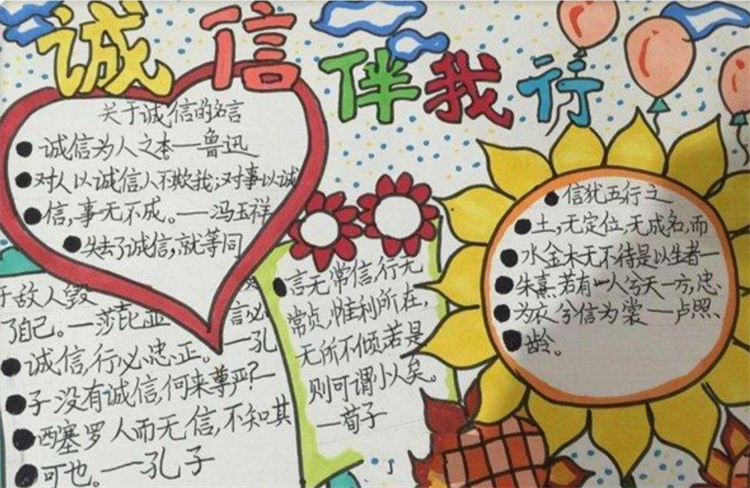 诚信伴我行
关于诚信的名言
诚信为人之本—鲁迅
对人以诚信人不欺我;对事以诚
信,事无不成。—冯玉祥
失去了诚信,就等同
敌人毁
了自己。—莎
言必
诚信,行必忠正。—孔
子没有诚信,何来尊严?—
西塞罗人而无信,不知其
可也。—孔子
言无常信,行无
常贞,惟利所在,
无所不倾若是
则可谓小人矣。
—荀子
信犹五行之
土,无定位,无成名,而
水金木无不待是以生者—
朱熹若有一人兮天一方,忠
为衣兮信为裳—卢照
龄。